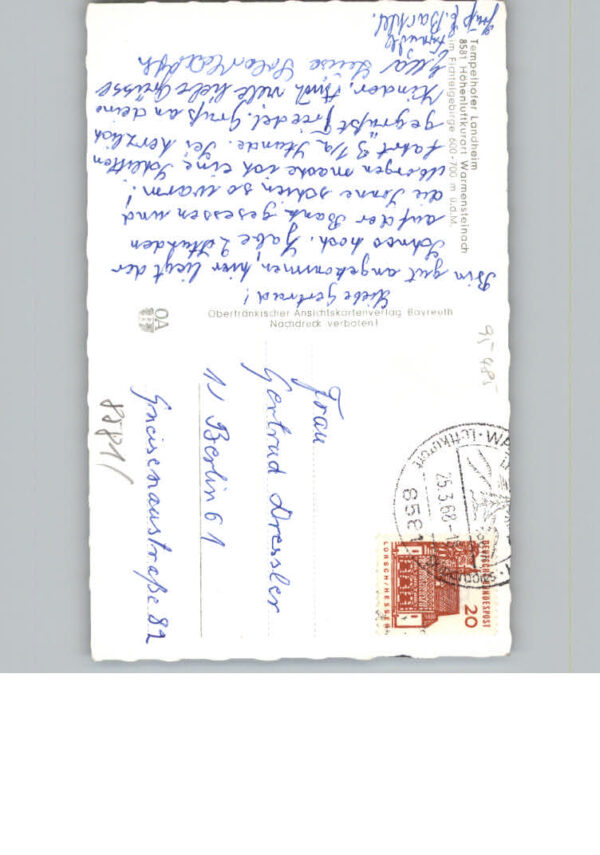 Tempelhofer Landheim
8581 Höhenluftkurort Warmensteinach
im Fichtelgebirge 600-700 m ü.d.M.
Liebe Gertrud!
Bin gut angekommen, hier liegt der
Schnee hoch. Habe 2 Stunden
auf der Bank gesessen und
die Sonne schien so warm!
Üborgen mache ich eine Schlitten
fahrt 3 1/2 Stunde. Sei herzlich
gegrüßt Friedel. Gruß an deine
Kinder, Auch viele liebe Grüsse
Luise
OA
Oberfränkischer Ansichtskartenverlag Bayreuth
Nachdruck verboten!
95 485
Frau
Gertrud Dressler
1 Berlin 61
Gneisenaustraße 82
8581
25.3.68
8581
DEUTSCHE BUNDESPOST
20
LORSCH/HESSEN